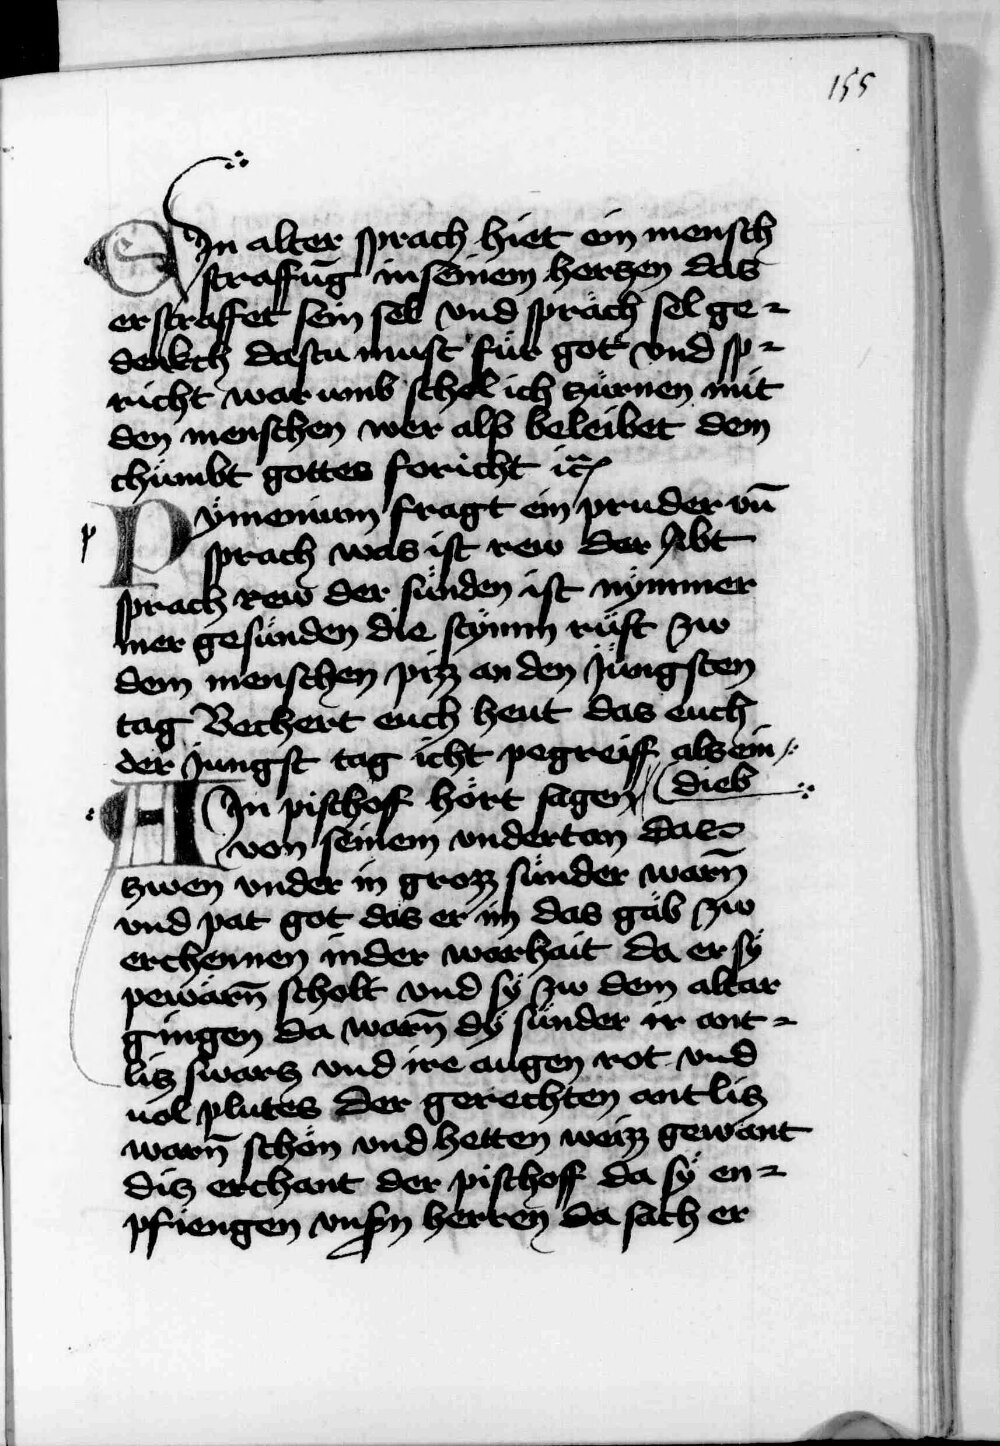 155
Ein alter sprach hiet ein mensch
straffūg in seinem herczen das
er straffet sein sel vnd spräch sel ge=
denkch dastu must für got vnd sp=
richt war umb schol ich zürnen mit
den menschen wer alß beleibet dem
chümbt gottes foricht ꝛc̄
p
Pÿmenium fragt ein pruder vn̄
sprach was ist rew der Abt
sprach rew der sünden ist nÿmmer
mer gesünden die stÿmm rüft zw
dem menschen picz an den Jüngsten
tag Bechert euch heut das euch
der Jungst tag icht pegreiff als ein
dieb
Ain pischoff hört sagen
von seinem vndertan das
zwen vnder in grozz sünder warn̄
vnd pat got das er im das gäb zw
erchennen in der warhait da er sÿ
pewärn̄ scholt vnd sÿ zw dem altar
gingen da warn̄ dÿ sünder ir ant=
licz swarcz vnd ire augen rot vnd
uol plutes der gerechten antlicz
warn̄ schön vnd hetten weizz gewant
dicz erchant der pischoff da sÿ en=
pfiengen vnsn herren da sach er